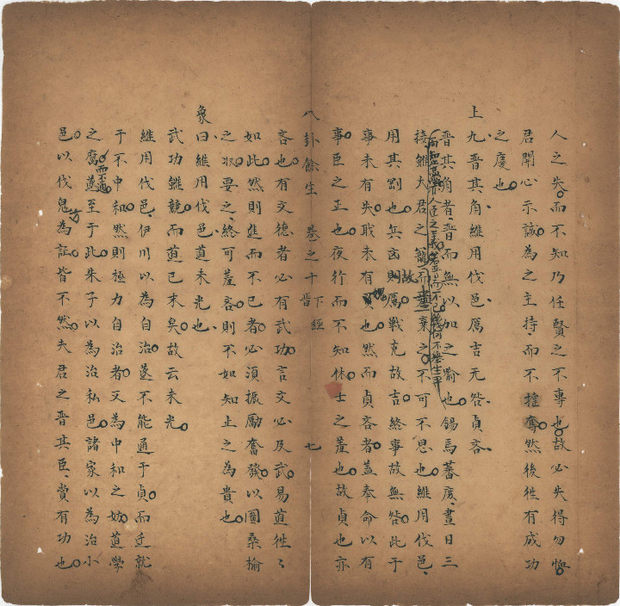 人之失而不知乃任賢之不專也故必失得勿恤
君開心示誠為之主持而不搖奪然後往有成功
之慶也
上九晋其角維用伐邑厲吉无咎貞吝
晋其角者晋而無以加之喻也錫馬蕃庶晝日三
人臣之義
接雖大君之寵而棄之不可不思也維用伐邑
用其罰也兵凶故厲戰克故吉終事故無咎此于
事未有失耿未有也然而貞吝者盖奉命以有
事臣之正也夜行而不知休士之羞也故貞也亦
八卦餘生 卷之十 下經 晋 七
吝也有文德者必有武功言文必及武易道往〻
如此然則進而不已者必須振勵奮發以圖桑榆
之收要之終可羞吝則不如知止之為貴也
象曰維用伐邑道未光也
武功雖競而道已末矣故云未光
維用伐邑伊川以為自治遂不能通于貞而迁就
于不中和然則極力自治者又為中和之妨道學
之腐而至于此朱子以為治私邑諸家以為治小
邑以伐鬼方為証皆不然夫君之晋其臣賞有功也